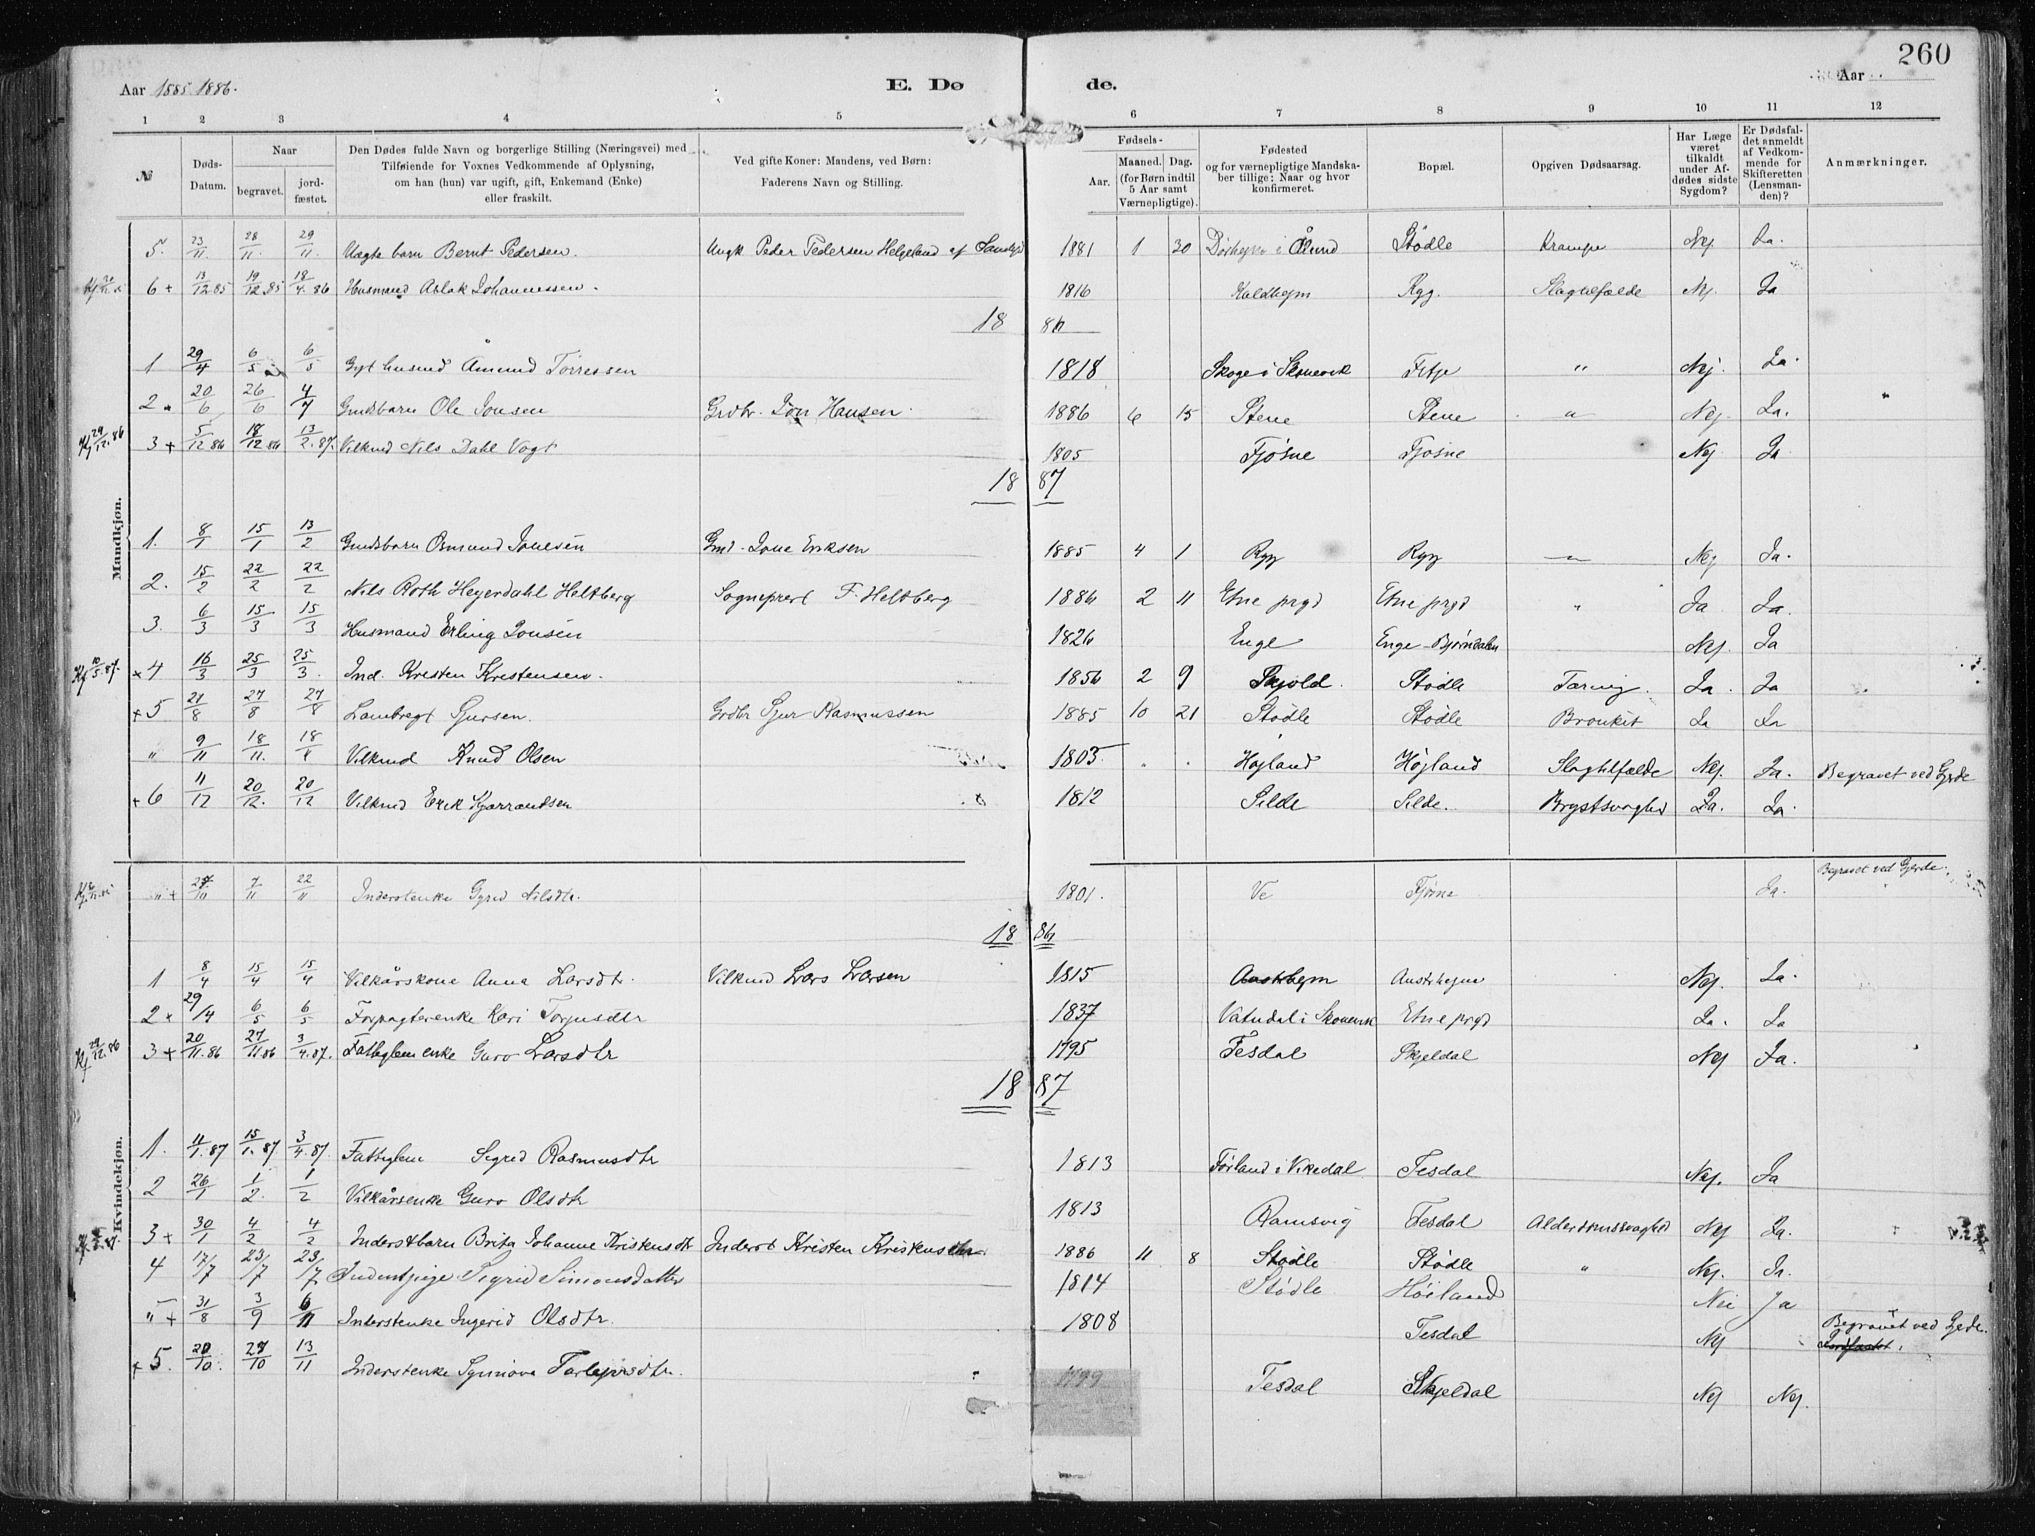 260
Aar 1885. 1886.
E. Dø de.
Aar
1 2 3 4 5 6 7 8 9 10 11 12
№
Døds-Datum.
Naar
begravet.
jord-fæstet.
Den Dødes fulde Navn og borgerlige Stilling (Næringsvei) med
Tilføiende for Voxnes Vedkommende af Oplysning,
om han (hun) var ugift, gift, Enkemand (Enke)
eller fraskilt.
Ved gifte Koner: Mandens, ved Børn:
Faderens Navn og Stilling.
Fødsels-
Aar.
Maaned. Dag.
(for Børn indtil
5 Aar samt
Værnepligtige).
Fødested
og for værnepligtige Mandska-
ber tillige: Naar og hvor
konfirmeret.
Bopæl.
Opgiven Dødsaarsag.
Har Læge
været
tilkaldt
under Af-
dødes sidste
Sygdom?
Er Dødsfal-
det anmeldt
af Vedkom-
mende for
Skifteretten
(Lensman-
den)?
Anmærkninger.
Mandkjøn.
5. 23/11 28/11. 29/11. Uægte barn Bernt Pedersen. Ungk Peder Pedersen Helgeland af 1881 1 30 i Ølund Stødle Krampe Nej Ja.
6 + 13/12.85 19/12.85 18/4.86 Husmand Aslak Johannessen. 1816 Kaldhejm Ryg. Slagtilfælde Nej. Ja
18 86
1 29/4 6/5 6/5 Gift husmd Åmund Tørressen 1818 Skoge i Skonevik Fitje " Nej. Ja.
2. 20/6 26/6 4/7 Gmdsbarn Ole Jonsen Grdbr. Jon Hansen. 1886 6 15 Stene Stene " Nej. Ja.
Kf 29/12.86 3 + 5/12 86 18/12.86 13/2.87. Vilkmd Nils Dahl Vogt 1805 Fjøsne Fjøsne Nej. Ja
18 87
1. 8/1 15/1 13/2 Gmdsbarn Osmund Jonesen Gmd. Jone Eriksen 1885 4 1 Ryg Ryg " Nej Ja.
2. 15/2 22/2 22/2 Nils Roth Heyerdahl Heltberg Sogneprest F. Heltberg 1886 2 11 Etne prgd Etne prgd " Ja Ja.
3. 6/3 15/3 15/3 Husmand Erling Jonsen 1826 Enge Enge-Bjørndalen Nej. Ja
Kf 10/5.87. + 4 16/3 25/3 25/3. Ind. Kresten Kristensen. 1856 2 9 Skjold. Stødle Tæring. Ja. Ja
+ 5 21/8 27/8 27/8 Lambregt Sjursen. Grdbr Sjur Rasmussen 1885 10 21 Stødle Stødle Bronkit Ja Ja
" 9/11 18/11. 18/11 Vilkmd Knud Olsen 1803. Højland Højland Slagtilfælde Nej. Ja. Begravet ved Gjerde
+ 6 11/12 20/12. 20/12 Vilkmd Erik Kjarrandsen 1812 Silde Silde. Brystsvaghed Ja. Ja.
Kvindekjøn.
" + 28/10 7/11 22/11 Inderstenke Gyrid Nilsdtr. 1801. Ve Fjøsne Ja. Begravet ved Gjerde.
18 86
1 8/4 15/4 15/4 Vilkårskone Anna Larsdtr. Vilkmd Lars Larsen 1815 Austrhejm Austrhejm Nej. Ja.
2 + 29/4 6/5 6/5 Forpagterenke Kari Torjusdtr 1837 Vatndal i Skonevik Etne prgd Ja. Ja
Kf 29/12.86 3 + 20/11.86 27/11.86 3/4.87. Fattiglem enke Guro Larsdtr 1795 Tesdal Skjeldal Nej Ja.
18 87
1. 4/1.87 15/1.87 3/4.87. Fattiglem Sigrid Rasmusdtr 1813 Førland i Vikedal Tesdal Nej. Ja
2 26/1 1/2. 1/2 Vilkårsenke Guro Olsdtr 1813 Ramsvig Tesdal Alderdomssvaghed Nej Ja.
3 + 30/1 4/2 4/2 Inderstbarn Brita Johanne Kristensdtr Inderst Kristen Kristensen 1886 11 8 Stødle Stødle " Nej. Ja.
4 17/7 23/7 23/7 Inderstpige Sigrid Simonsdatter 1814 Stødle Høiland Nei Ja
" + 31/8 3/9 6/11 Inderstenke Ingerid Olsdtr. 1808 Tesdal Nej Begravet ved Gjerde.
+ 5. 20/10. 27/10 13/11 Inderstenke Synnøve Torlejvsdtr. 1799 Tesdal Skjeldal Nej Nej.